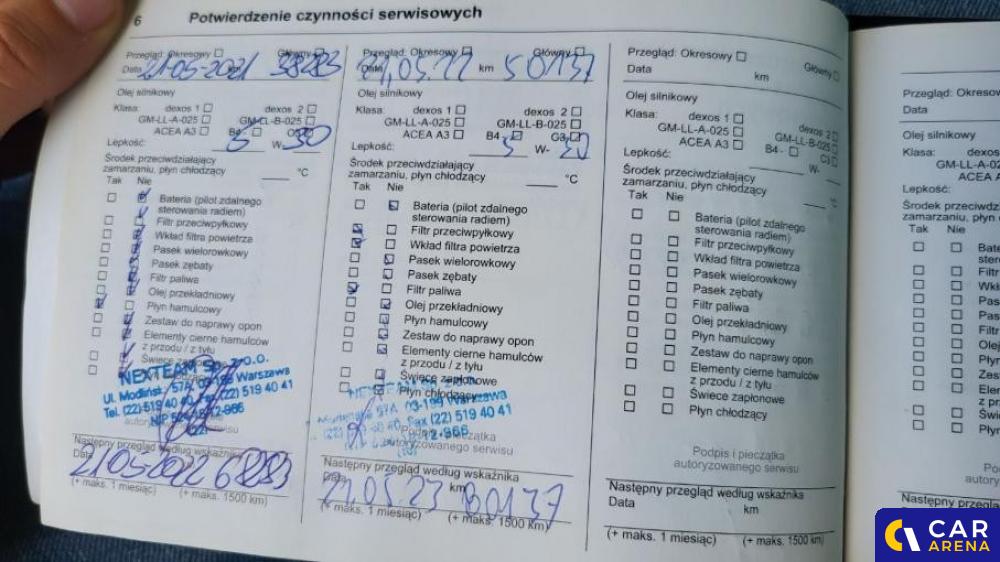 6 Potwierdzenie czynności serwisowych
Przegląd: Okresowy Główny
Data 21-05-2021 km 38283
Olej silnikowy
Klasa: dexos 1 dexos 2
GM-LL-A-025 GM-LL-B-025
ACEA A3 B4 - C3
Lepkość: 5 W- 30
Środek przeciwdziałający
zamarzaniu, płyn chłodzący °C
Tak Nie
Bateria (pilot zdalnego
sterowania radiem)
Filtr przeciwpyłkowy
Wkład filtra powietrza
Pasek wielorowkowy
Pasek zębaty
Filtr paliwa
Olej przekładniowy
Płyn hamulcowy
Zestaw do naprawy opon
Elementy cierne hamulców
z przodu / z tyłu
Świece zapłonowe
NEXTEAM Sp. z o.o.
Ul. Modlińska 57A, 03-199 Warszawa
Tel. (22) 519 40 40 Fax (22) 519 40 41
NIP
autoryzowanego serwisu
Następny przegląd według wskaźnika
Data 21-05-2022 68283
(+ maks. 1 miesiąc) (+ maks. 1500 km)
Przegląd: Okresowy Główny
Data 21.05.22 km 50137
Olej silnikowy
Klasa: dexos 1 dexos 2
GM-LL-A-025 GM-LL-B-025
ACEA A3 B4 - C3
Lepkość: 5 W-
Środek przeciwdziałający
zamarzaniu, płyn chłodzący °C
Tak Nie
Bateria (pilot zdalnego
sterowania radiem)
Filtr przeciwpyłkowy
Wkład filtra powietrza
Pasek wielorowkowy
Pasek zębaty
Filtr paliwa
Olej przekładniowy
Płyn hamulcowy
Zestaw do naprawy opon
Elementy cierne hamulców
z przodu / z tyłu
Świece zapłonowe
Płyn chłodzący
NEXTEAM
57A, 03-199 Warszawa
(22) 40 40 Fax (22) 519 40 41
Podpis i pieczątka
autoryzowanego serwisu
Następny przegląd według wskaźnika
Data 21.05.23 km 80137
(+ maks. 1 miesiąc) (+ maks. 1500 km)
Przegląd: Okresowy Główny
Data km
Olej silnikowy
Klasa: dexos 1 dexos 2
GM-LL-A-025 GM-LL-B-025
ACEA A3 B4 - C3
Lepkość: W-
Środek przeciwdziałający
zamarzaniu, płyn chłodzący °C
Tak Nie
Bateria (pilot zdalnego
sterowania radiem)
Filtr przeciwpyłkowy
Wkład filtra powietrza
Pasek wielorowkowy
Pasek zębaty
Filtr paliwa
Olej przekładniowy
Płyn hamulcowy
Zestaw do naprawy opon
Elementy cierne hamulców
z przodu / z tyłu
Świece zapłonowe
Płyn chłodzący
Podpis i pieczątka
autoryzowanego serwisu
Następny przegląd według wskaźnika
Data km
(+ maks. 1 miesiąc) (+ maks. 1500 km)
Przegląd: Okresow
Data
Olej silnikowy
Klasa: dexos
GM-LL-A-02
ACEA A
Lepkość:
Środek przeciwdz
zamarzaniu, płyn
Tak Nie
Bate
ster
Filtr
Wk
Pas
Pas
Filtr
Ole
Pły
Zes
Ele
z pr
Świ
Pły
Po
autory
Następny przegląd
Data
(+ maks. 1 miesiąc
CAR
ARENA